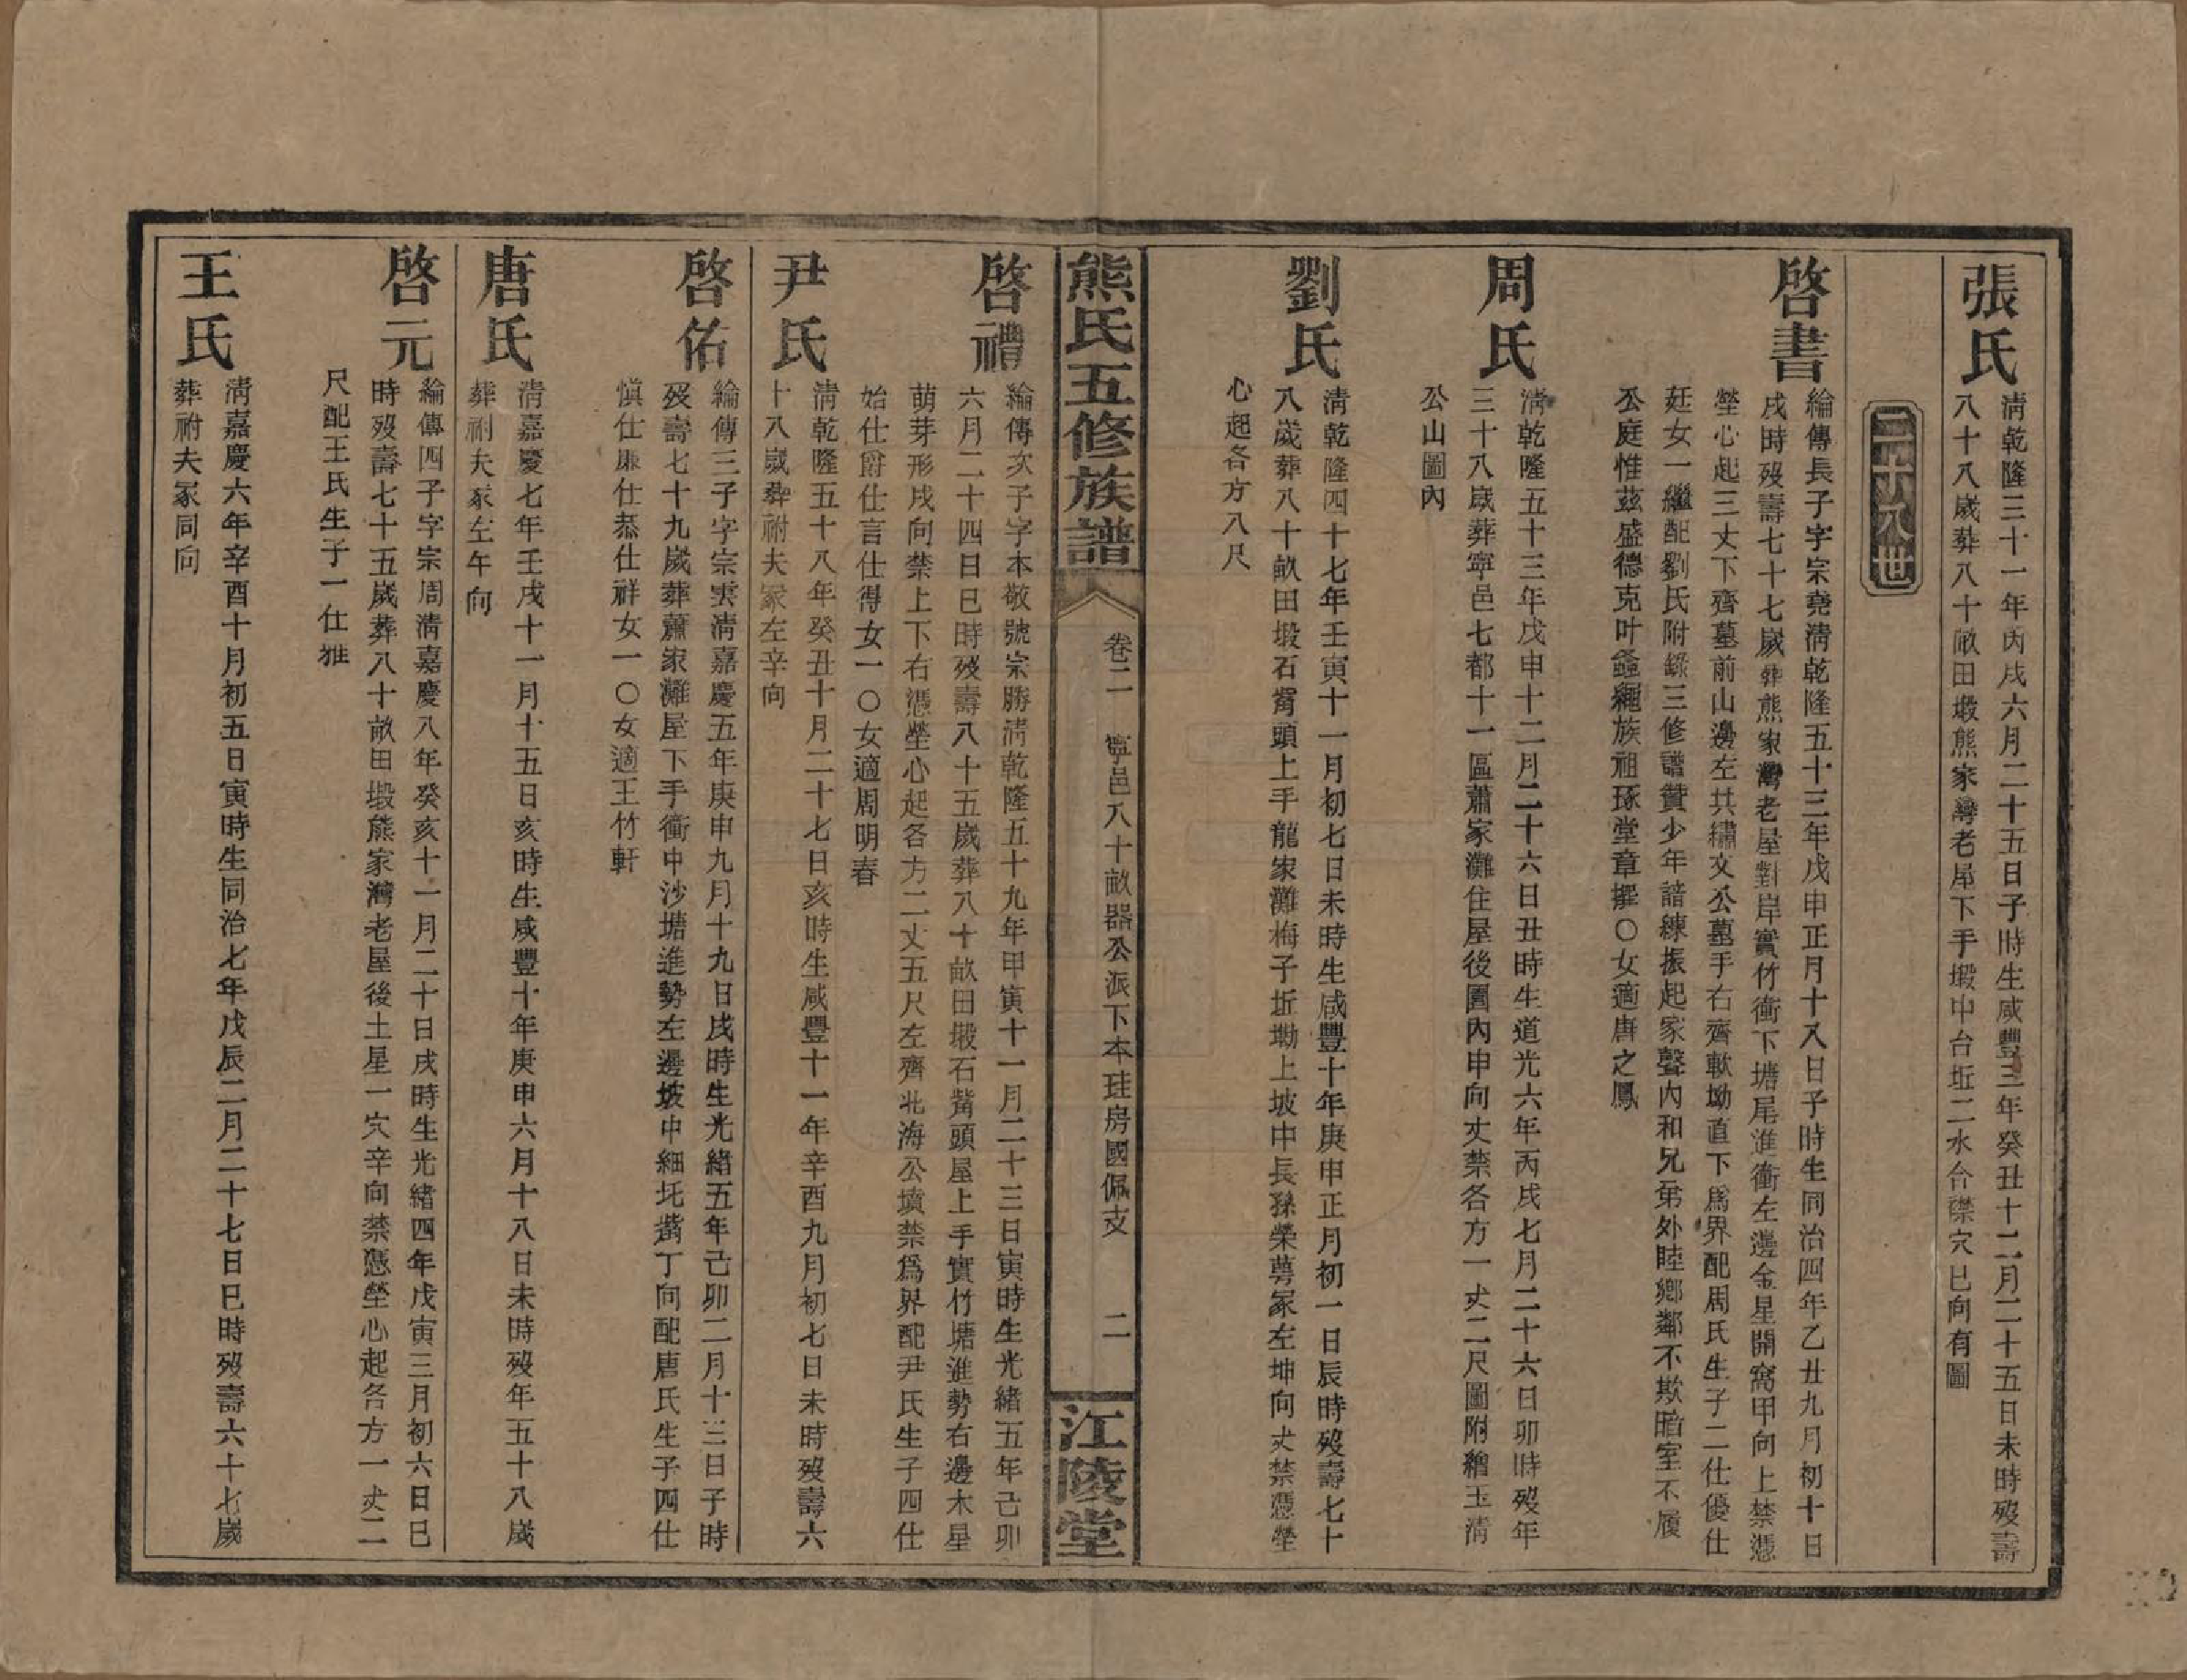 張氏
清乾隆三十一年丙戌六月二十五日子時生咸豐三年癸丑十二月二十五日未時歿壽
八十八歲葬八十畝田塅熊家灣老屋下手塅中台坵二水合襟穴巳向有圖
二十八世
啓書
綸傳長子字宗堯清乾隆五十三年戊申正月十八日子時生同治四年乙丑九月初十日
戌時歿壽七十七歲葬熊家灣老屋對岸實竹衝下塘尾進衝左邊金星開窩甲向上禁憑
塋心起三丈下齊墓前山邊左共繡文公墓手右齊軟坳直下爲界配周氏生子二仕優仕
廷女一繼配劉氏附錄三修譜贊少年諳練振起家聲內和兄弟外睦鄉鄰不欺暗室不履
公庭惟茲盛德克叶螽繩族祖琢堂章撰〇女適唐之鳳
周氏
清乾隆五十三年戊申十二月二十六日丑時生道光六年丙戌七月二十六日卯時歿年
三十八歲葬寧邑七都十一區蕭家灘住屋後園內申向丈禁各方一丈二尺圖附繪玉清
公山圖內
劉氏
清乾隆四十七年壬寅十一月初七日未時生咸豐十年庚申正月初一日辰時歿壽七十
八歲葬八十畝田塅石觜頭上手龍家灘梅子坵墈上坡中長孫榮蕚冢左坤向丈禁憑塋
心起各方八尺
熊氏五修族譜
卷二
寧邑八十畝器公派下本珪房國佩支
二
江陵堂
啓禮
綸傳次子字本敬號宗勝清乾隆五十九年甲寅十一月二十三日寅時生光緒五年己卯
六月二十四日巳時歿壽八十五歲葬八十畝田塅石觜頭屋上手實竹塘進勢右邊木星
萌芽形戌向禁上下右憑塋心起各方二丈五尺左齊北海公墳禁爲界配尹氏生子四仕
始仕爵仕言仕得女一〇女適周明春
尹氏
清乾隆五十八年癸丑十月二十七日亥時生咸豐十一年辛酉九月初七日未時歿壽六
十八歲葬祔夫冢左辛向
啓佑
綸傳三子字宗雲清嘉慶五年庚申九月十九日戌時生光緒五年己卯二月十三日子時
歿壽七十九歲葬蕭家灘屋下手衝中沙塘進勢左邊坡中細圫觜丁向配唐氏生子四仕
愼仕康仕恭仕祥女一〇女適王竹軒
唐氏
清嘉慶七年壬戌十一月十五日亥時生咸豐十年庚申六月十八日未時歿年五十八歲
葬祔夫冢左午向
啓元
綸傳四子字宗周清嘉慶八年癸亥十一月二十日戌時生光緒四年戊寅三月初六日巳
時歿壽七十五歲葬八十畝田塅熊家灣老屋後土星一穴辛向禁憑塋心起各方一丈二
尺配王氏生子一仕雅
王氏
清嘉慶六年辛酉十月初五日寅時生同治七年戊辰二月二十七日巳時歿壽六十七歲
葬祔夫冢同向